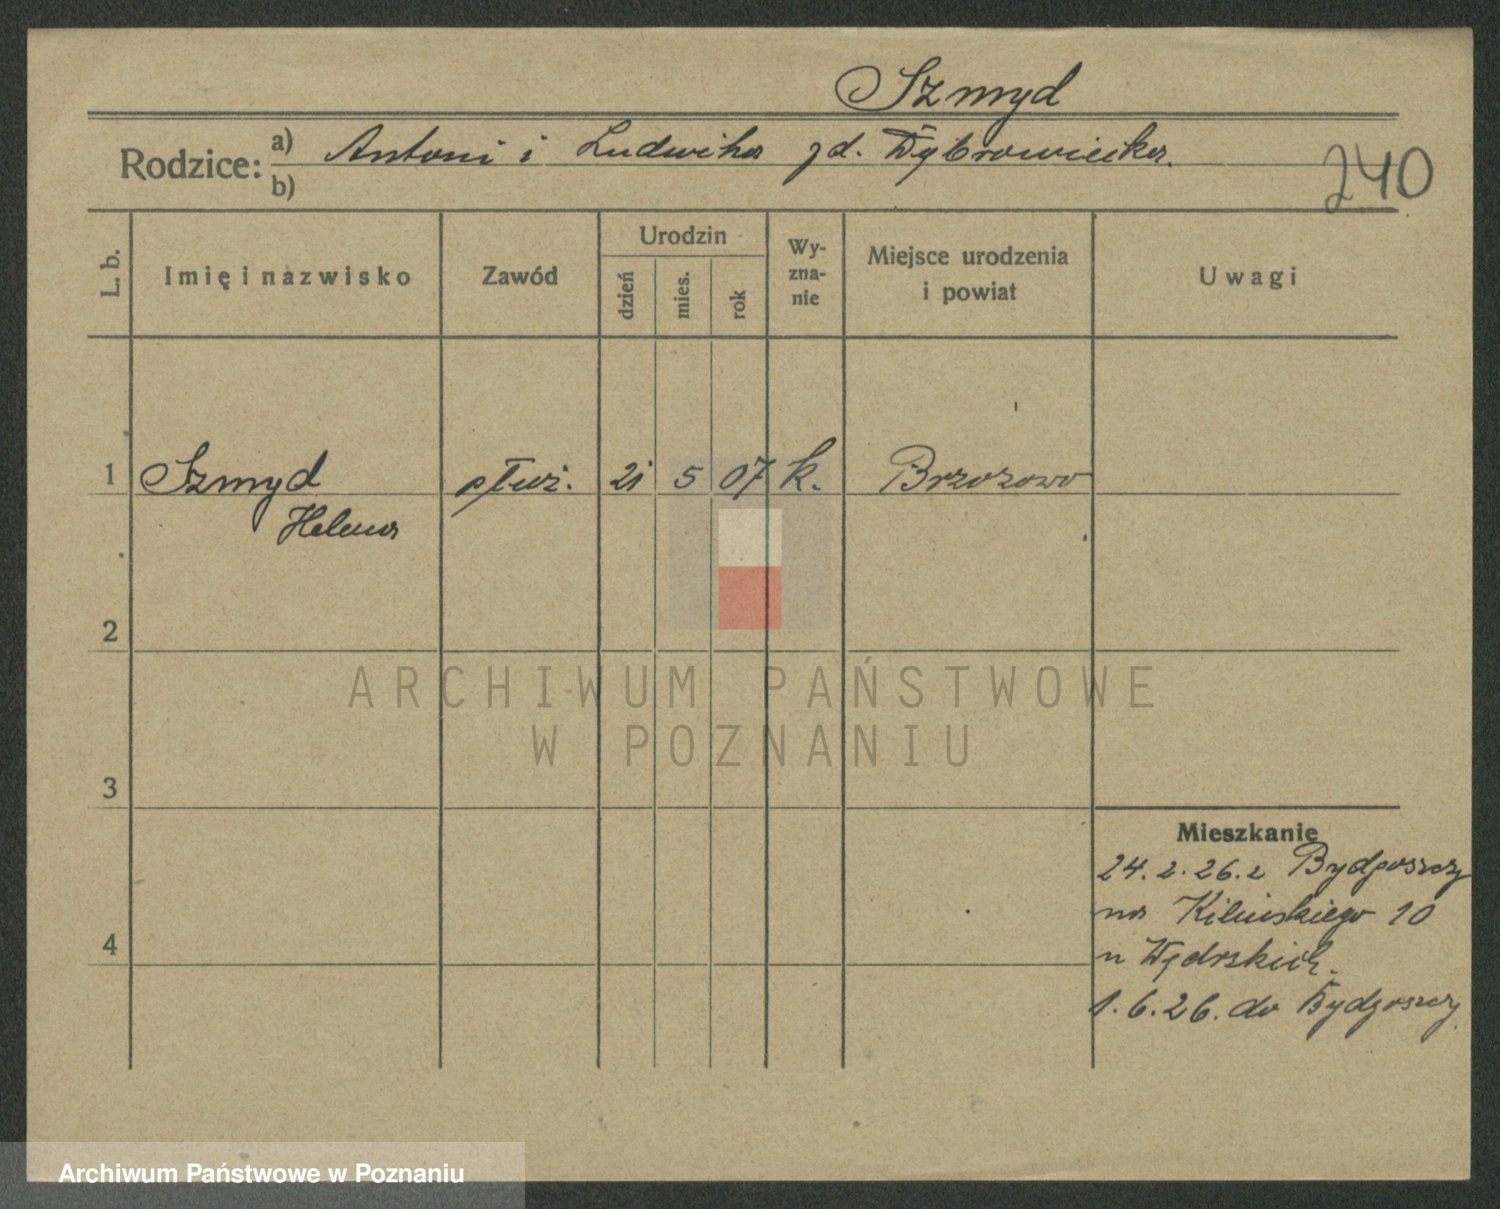 Szmyd
Rodzice: a) Antoni i Ludwika zd. Dąbrowiecka.
b)
240
L. b.
Imię i nazwisko
Zawód
Urodzin
dzień
mies.
rok
Wy-
zna-
nie
Miejsce urodzenia
i powiat
Uwagi
1 Szmyd służ. 21 5 07 k. Brzozowo
Helena
2
ARCHIWUM PAŃSTWOWE
W POZNANIU
3
Mieszkanie
24. 2. 26. z Bydgoszczy
na Kilińskiego 10
4
u
1. 6. 26. do Bydgoszczy
Archiwum Państwowe w Poznaniu